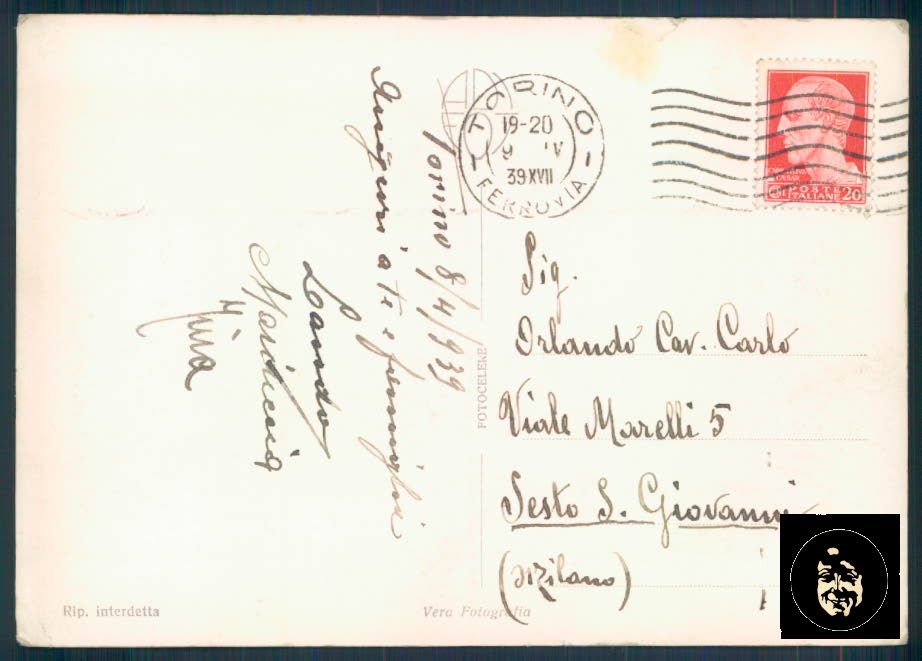 TORINO
19-20
9 IV
39 XVII
FERROVIA
POSTE
ITALIANE 20
Torino 8/4/939
Auguri a te e famiglia
Lando
Nina
FOTOCELERE
Sig.
Orlando Cav. Carlo
Viale Marelli 5
Sesto S. Giovanni
(Milano)
Rip. interdetta
Vera Fotografia